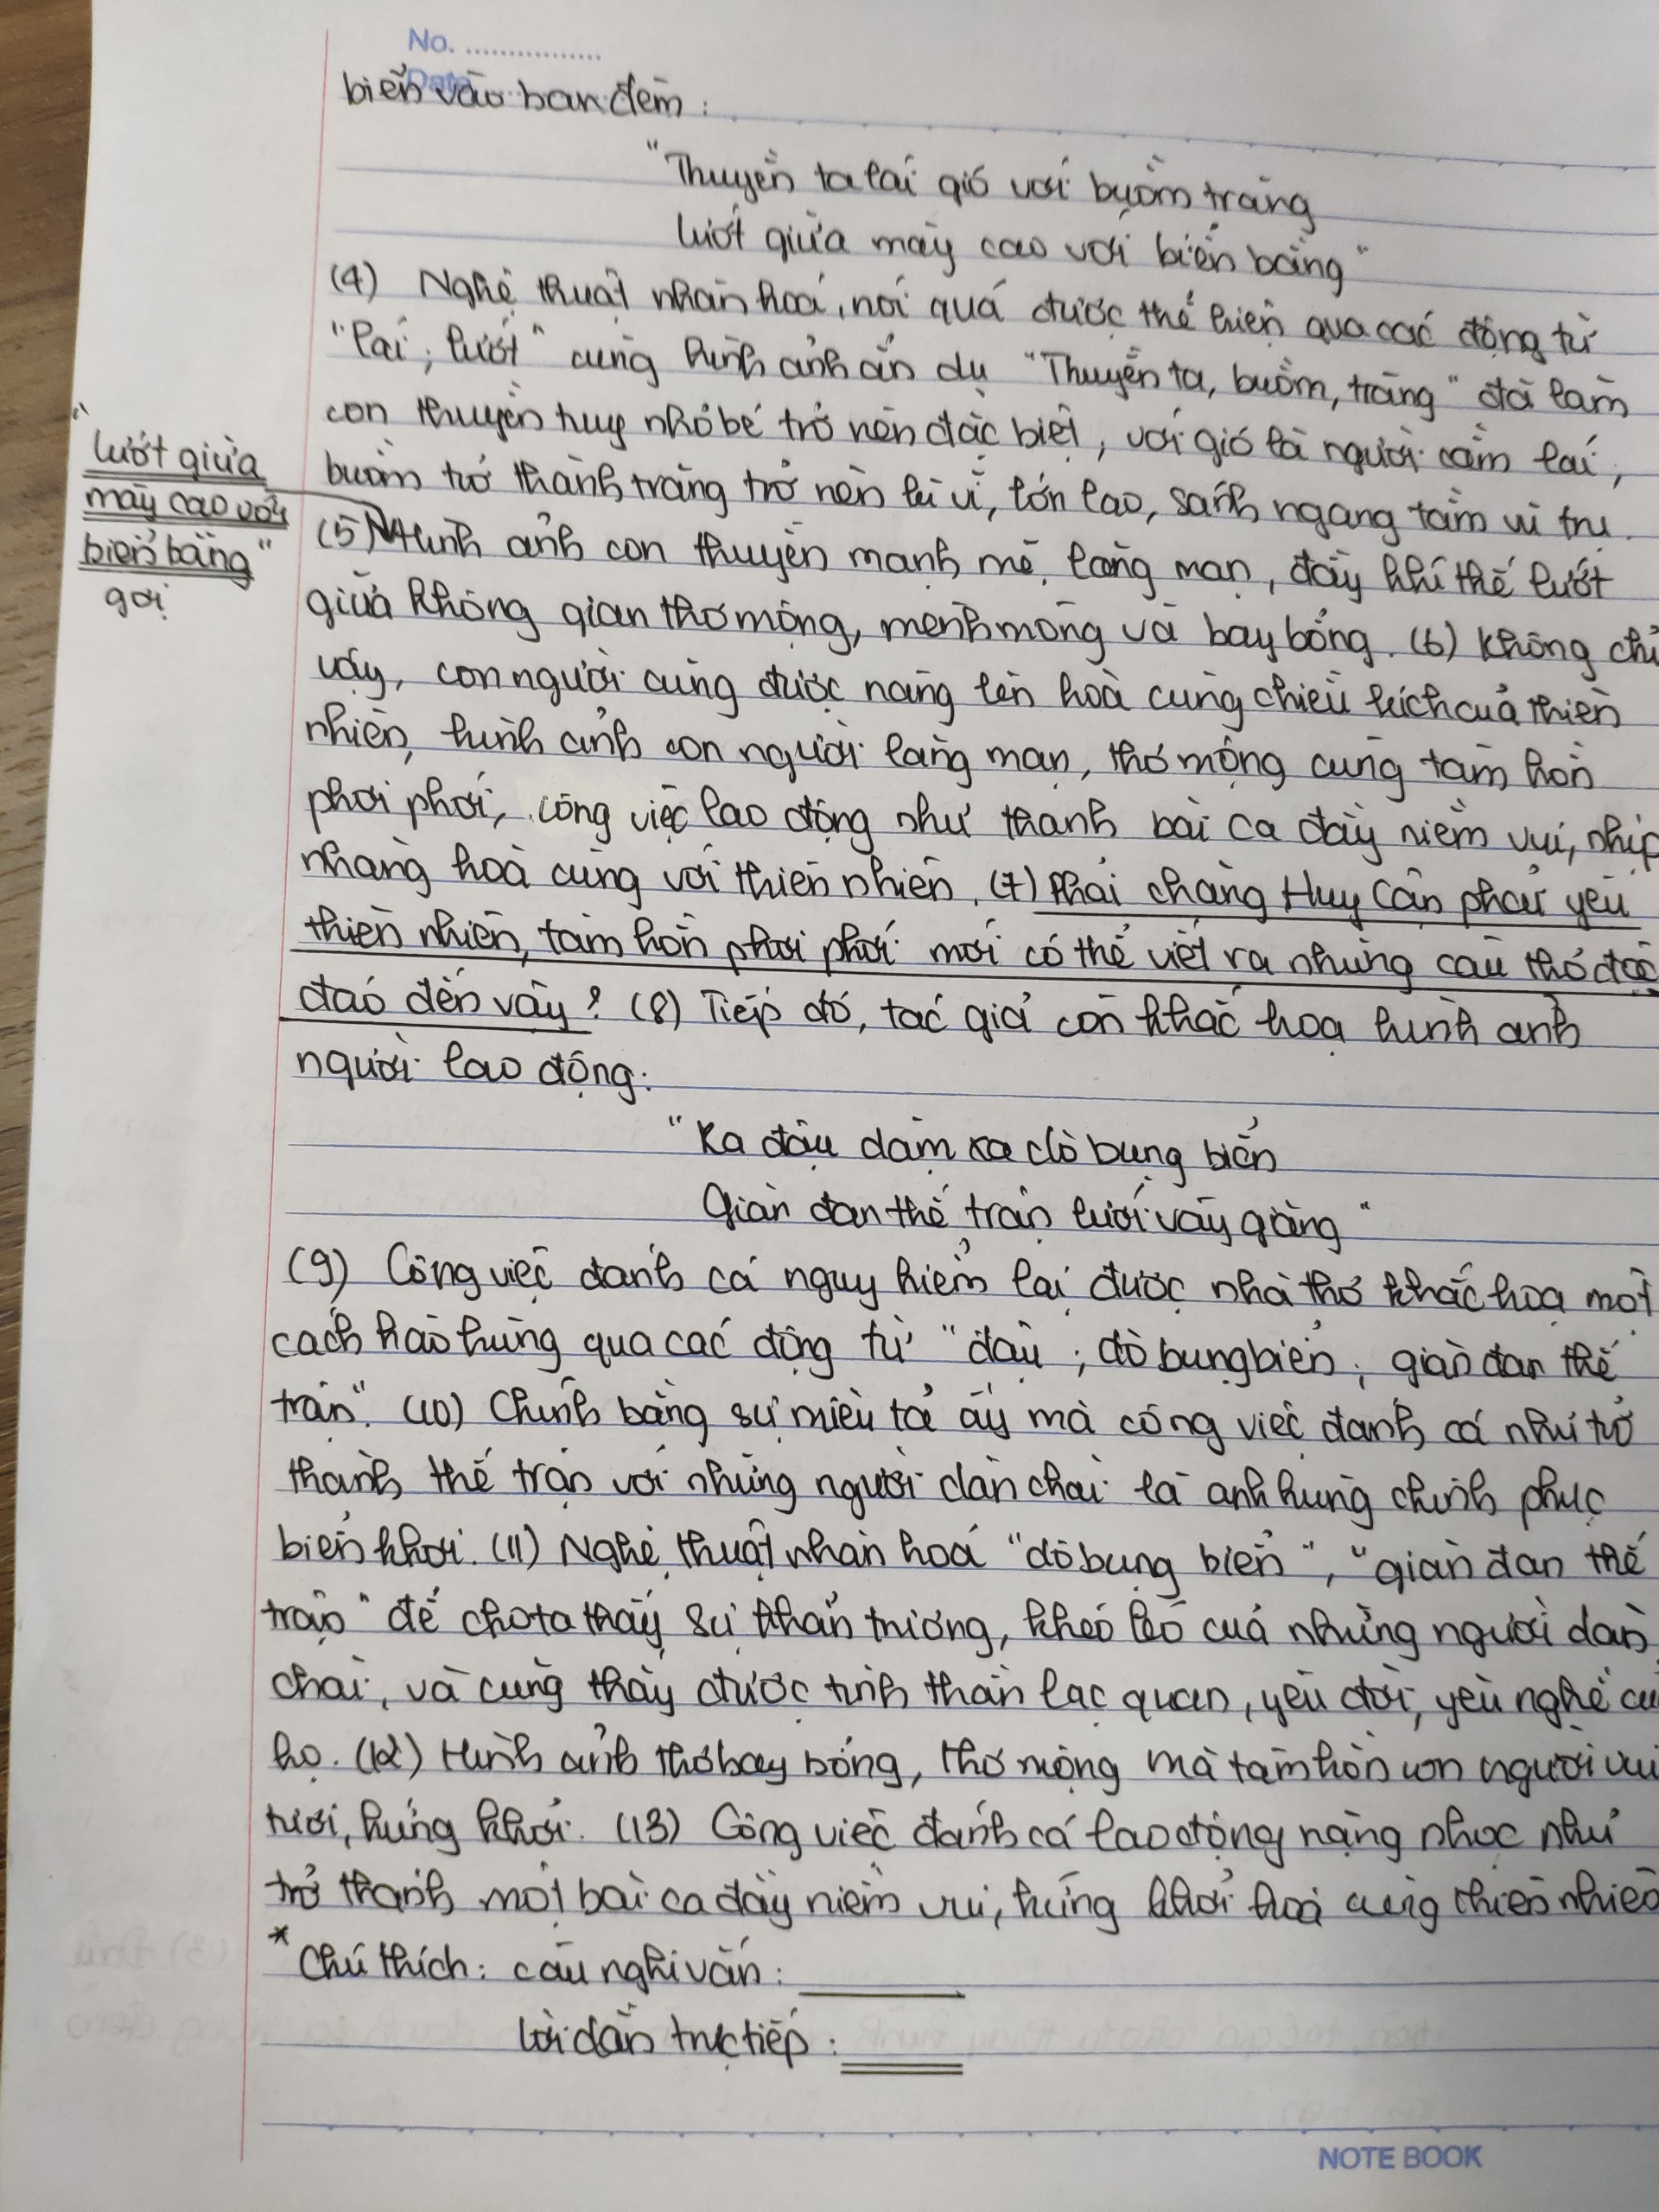 No. ................
Date
biển vào ban đêm:
"Thuyền ta lái gió với buồm trăng
Lướt giữa mây cao với biển bằng"
(4) Nghệ thuật nhân hoá, nói quá được thể hiện qua các động từ
"lái, lướt" cùng hình ảnh ẩn dụ "Thuyền ta, buồm, trăng" đã làm
con thuyền tuy nhỏ bé trở nên đặc biệt, với gió là người cầm lái,
buồm trở thành trăng trở nên kì vĩ, lớn lao, sánh ngang tầm vũ trụ.
"lướt giữa
mây cao với
biển bằng"
gợi
(5) Hình ảnh con thuyền mạnh mẽ, lãng mạn, đầy khí thế lướt
giữa không gian thơ mộng, mênh mông và bay bổng. (6) Không chỉ
vậy, con người cũng được nâng lên hoà cùng chiều kích của thiên
nhiên, hình ảnh con người lãng mạn, thơ mộng cùng tâm hồn
phơi phới, công việc lao động như thành bài ca đầy niềm vui, nhịp
nhàng hoà cùng với thiên nhiên. (7) Phải chăng Huy Cận phải yêu
thiên nhiên, tâm hồn phơi phới mới có thể viết ra những câu thơ độc
đáo đến vậy? (8) Tiếp đó, tác giả còn khắc hoạ hình ảnh
người lao động:
"Ra đậu dặm xa dò bụng biển
Giàn đan thế trận lưới vây giăng"
(9) Công việc đánh cá nguy hiểm lại được nhà thơ khắc hoạ một
cách hào hùng qua các động từ "đậu; dò bụng biển; giàn đan thế
trận". (10) Chính bằng sự miêu tả ấy mà công việc đánh cá như trở
thành thế trận với những người dân chài là anh hùng chinh phục
biển khơi. (11) Nghệ thuật nhân hoá "dò bụng biển", "giàn đan thế
trận" để cho ta thấy sự khẩn trương, khéo léo của những người dân
chài, và cũng thấy được tinh thần lạc quan, yêu đời, yêu nghề củ
họ. (12) Hình ảnh thơ bay bổng, thơ mộng mà tâm hồn con người vui
tươi, hứng khởi. (13) Công việc đánh cá lao động nặng nhọc như
trở thành một bài ca đầy niềm vui, hứng khởi hoà cùng thiên nhiên
* Chú thích: câu nghi vấn:
lời dẫn trực tiếp:
NOTE BOOK